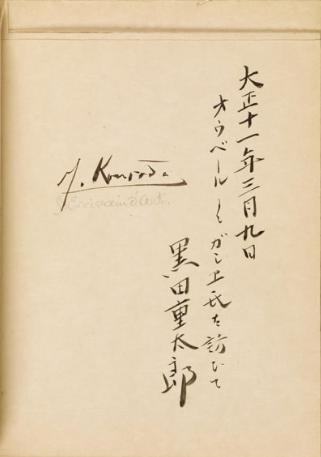 大正十一年三月九日
オウベールにガシエ氏を訪ひて
黒田重太郎
J. Kouroda
(Ecrivain d'art.